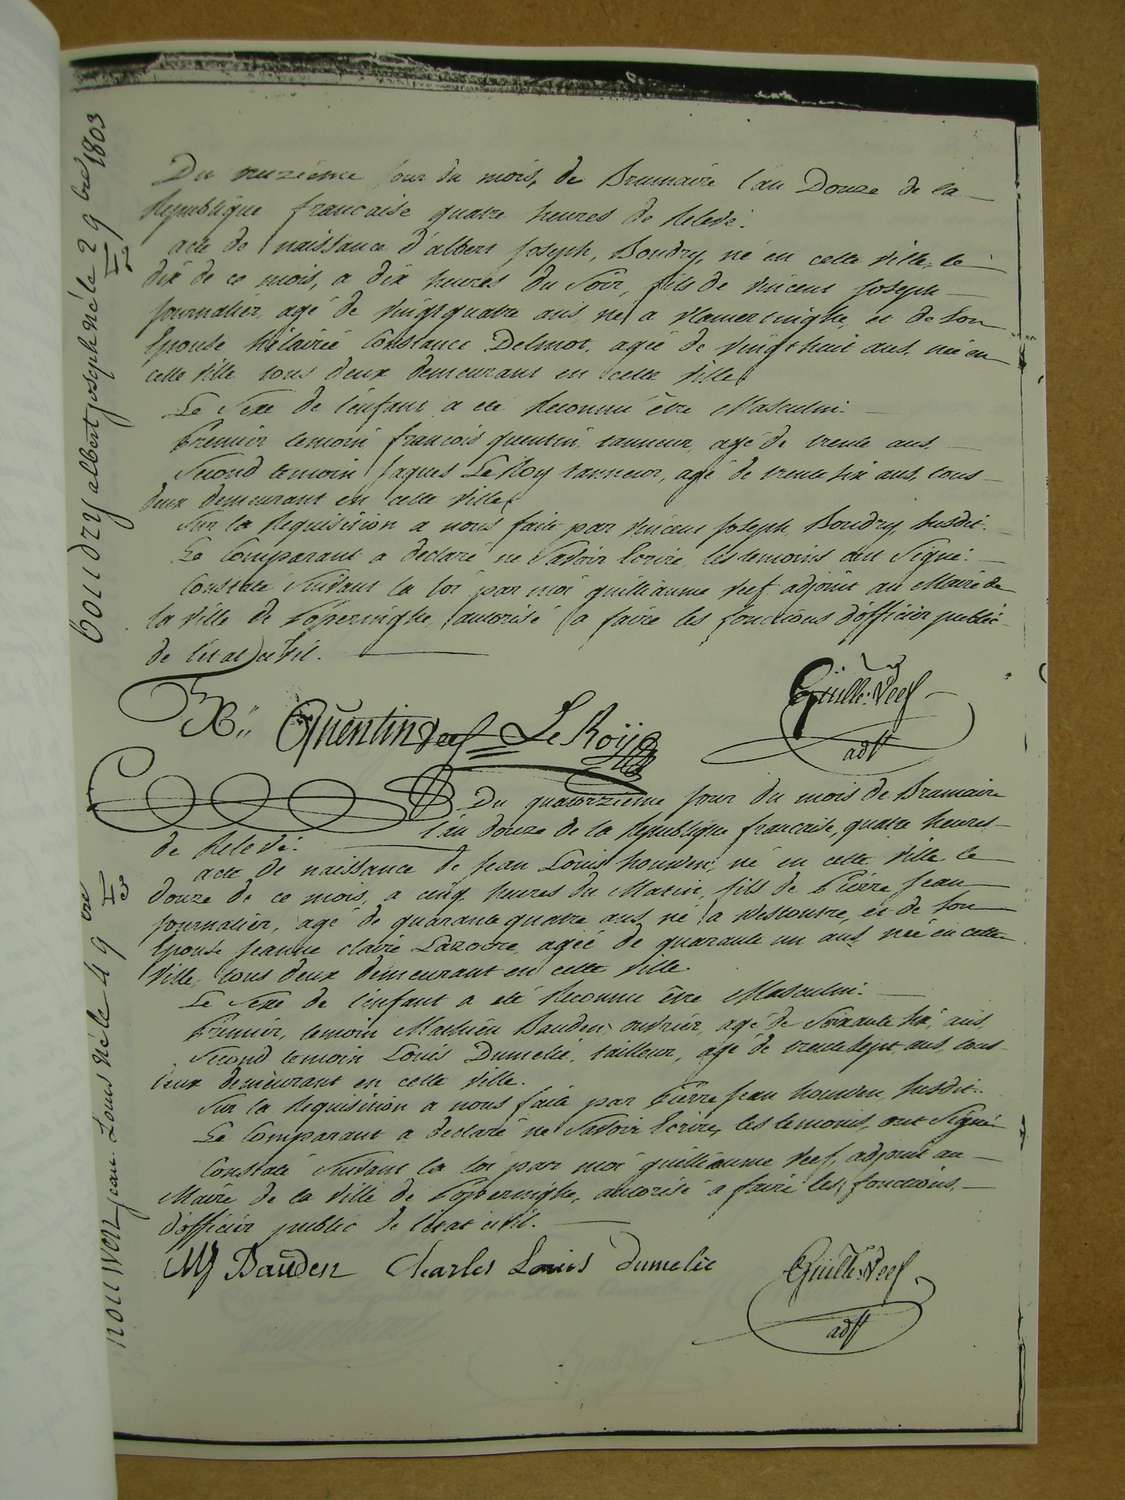 Du onzieme jour du mois, de Brumaire l'an Douze de la
Republique francaise quatre heures de Relevé.
acte de naissance d'albert Joseph, Boudry, né en cette ville, le
dix de ce mois, a dix heures du Soir, fils de vincent Joseph
journalier, agé de vingt quatre ans, né a vlamertinghe, et de Son
Epouse hilairie Constance Delmot, agée de vingt huit ans, née en
cette ville tous deux demeurant en cette ville.
Le Sexe de l'enfant a eté Reconnu être Masculin.
Premier temoin francois quentin tanneur, agé de trente ans
Second temoin Jaques Le Roy tanneur, agé de trente six ans, tous
deux demeurant en cette ville.
Sur la Requisition a nous faite par vincent Joseph Boudry, susdit.
Le Comparant a declaré ne Savoir Ecrire, les temoins ont Signé.
Constaté Suivant la loi par moi guilliaume veef adjoint au Maire de
la ville de Poperinghe, autorisé a faire les fonctions d'officier public
de l'état civil.
Quentin Le Roÿ Guille. Veef
adjt
BOUDRY albert joseph né le 2 9bre 1803
Du quatorzieme jour du mois de Brumaire
l'an douze de la Republique francaise, quatre heures
de Relevé.
acte De naissance de Jean Louis houwen, né en cette ville le
douze de ce mois, a cinq heures du Matin, fils de Pierre Jean
journalier, agé de quarante quatre ans, né a Westoutre, et de Son
Epouse Jeanne Claire Lazoore, agée de quarante un ans, née en cette
ville, tous deux demeurant en cette ville.
Le Sexe de l'enfant a eté Reconnu être Masculin.
Premier, temoin Mathieu Bauden, ouvrier, agé de Soixante six, ans,
Second temoin Louis Dumelié, tailleur, agé de trente sept, ans, tous
deux demeurant en cette ville.
Sur la Requisition a nous faite par Pierre Jean houwen, susdit.
Le Comparant a declaré ne Savoir Ecrire, les temoins, ont Signé
Constaté Suivant la loi par moi guilliaume veef, adjoint au
Maire de la ville de Poperinghe, autorisé a faire les, fonctions,
d'officier public de l'état civil.
MJ Bauden Charles Louis Dumelie Guille. Veef
adjt
HOUWEN jean. Louis né le 4 9bre